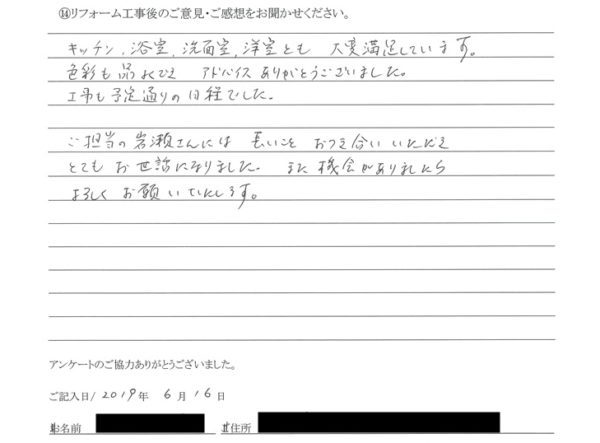 ⑭リフォーム工事後のご意見・ご感想をお聞かせください。
キッチン、浴室、洗面室、洋室とも 大変満足しています。
色彩も品よくでき アドバイスありがとうございました。
工事も予定通りの日程でした。
ご担当の岩瀬さんには 長いこと おつき合いいただき
とても お世話になりました。 また機会がありましたら
よろしく お願いいたします。
アンケートのご協力ありがとうございました。
ご記入日/ 2019年 6月 16日
お名前 ご住所